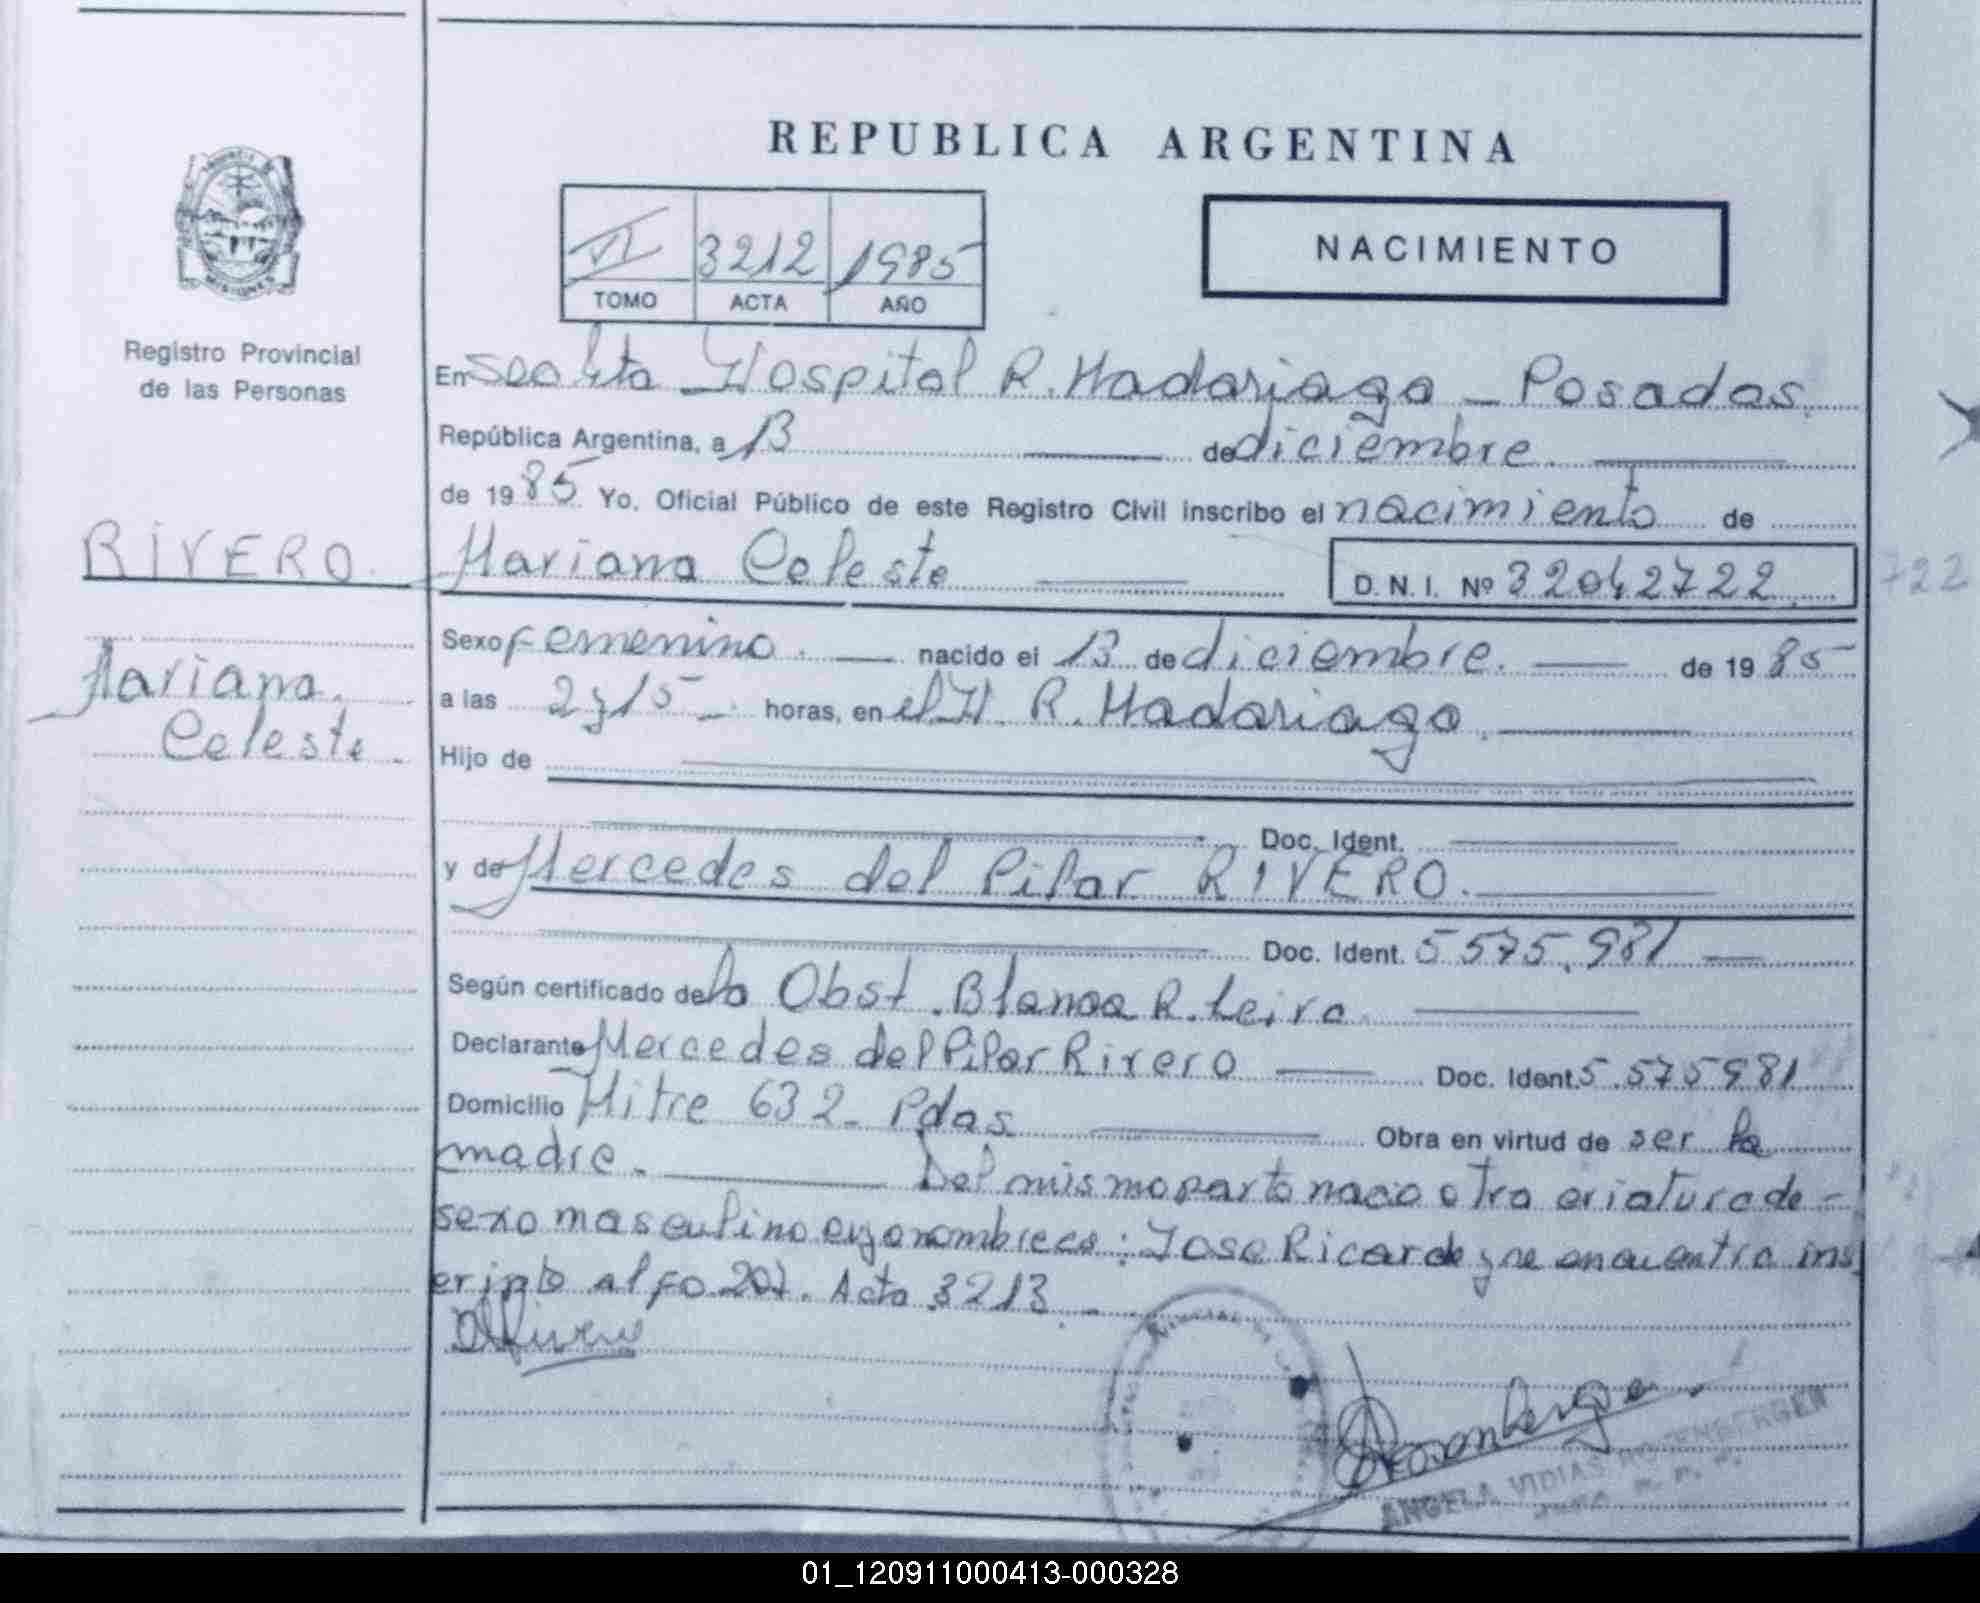 REPUBLICA ARGENTINA
NACIMIENTO
VI 3212 1985
TOMO ACTA AÑO
Registro Provincial
de las Personas
En Secc 4ta Hospital R. Madariaga - Posadas.
República Argentina, a 13 de diciembre.
de 1985 Yo, Oficial Público de este Registro Civil inscribo el nacimiento de
RIVERO
Mariana Celeste D. N. I. Nº 32042722
722
Sexo femenino. nacido el 13 de diciembre. de 1985
Mariana
Celeste
a las 2y15 horas, en el H. R. Madariaga.
Hijo de
Doc. Ident.
y de Mercedes del Pilar RIVERO.
Doc. Ident. 5575.981
Según certificado de la Obst. Blanca R. Leiva
Declarante Mercedes del Pilar Rivero Doc. Ident. 5.575981
Domicilio Mitre 632 - Pdas Obra en virtud de ser la
madre. Del mismo parto nacio otra criatura de -
sexo masculino cuyo nombre es: Jose Ricardo y se encuentra ins
cripto al fo 207. Acta 3213
ANGELA VIDIAS ROTENBERGEN
01_120911000413-000328